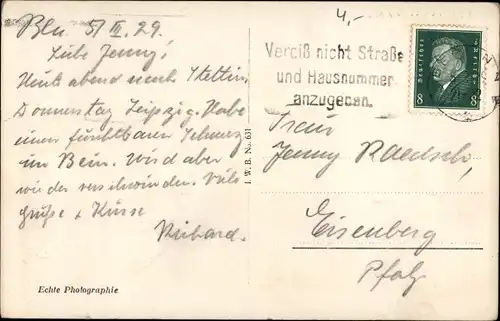 4,-
Bln. 5/III. 29.
Liebe Jenny!
Heute abend nach Stettin,
Donnerstag Leipzig. Habe
einen furchtbaren Schmerz
im Bein. Wird aber
wieder verschwinden. Viele
Grüße + Küsse
Richard.
Echte Photographie
I. W. B. No. 631
Vergiß nicht Straße
und Hausnummer
anzugeben.
8 8
Frau
Jenny
Eisenberg
Pfalz